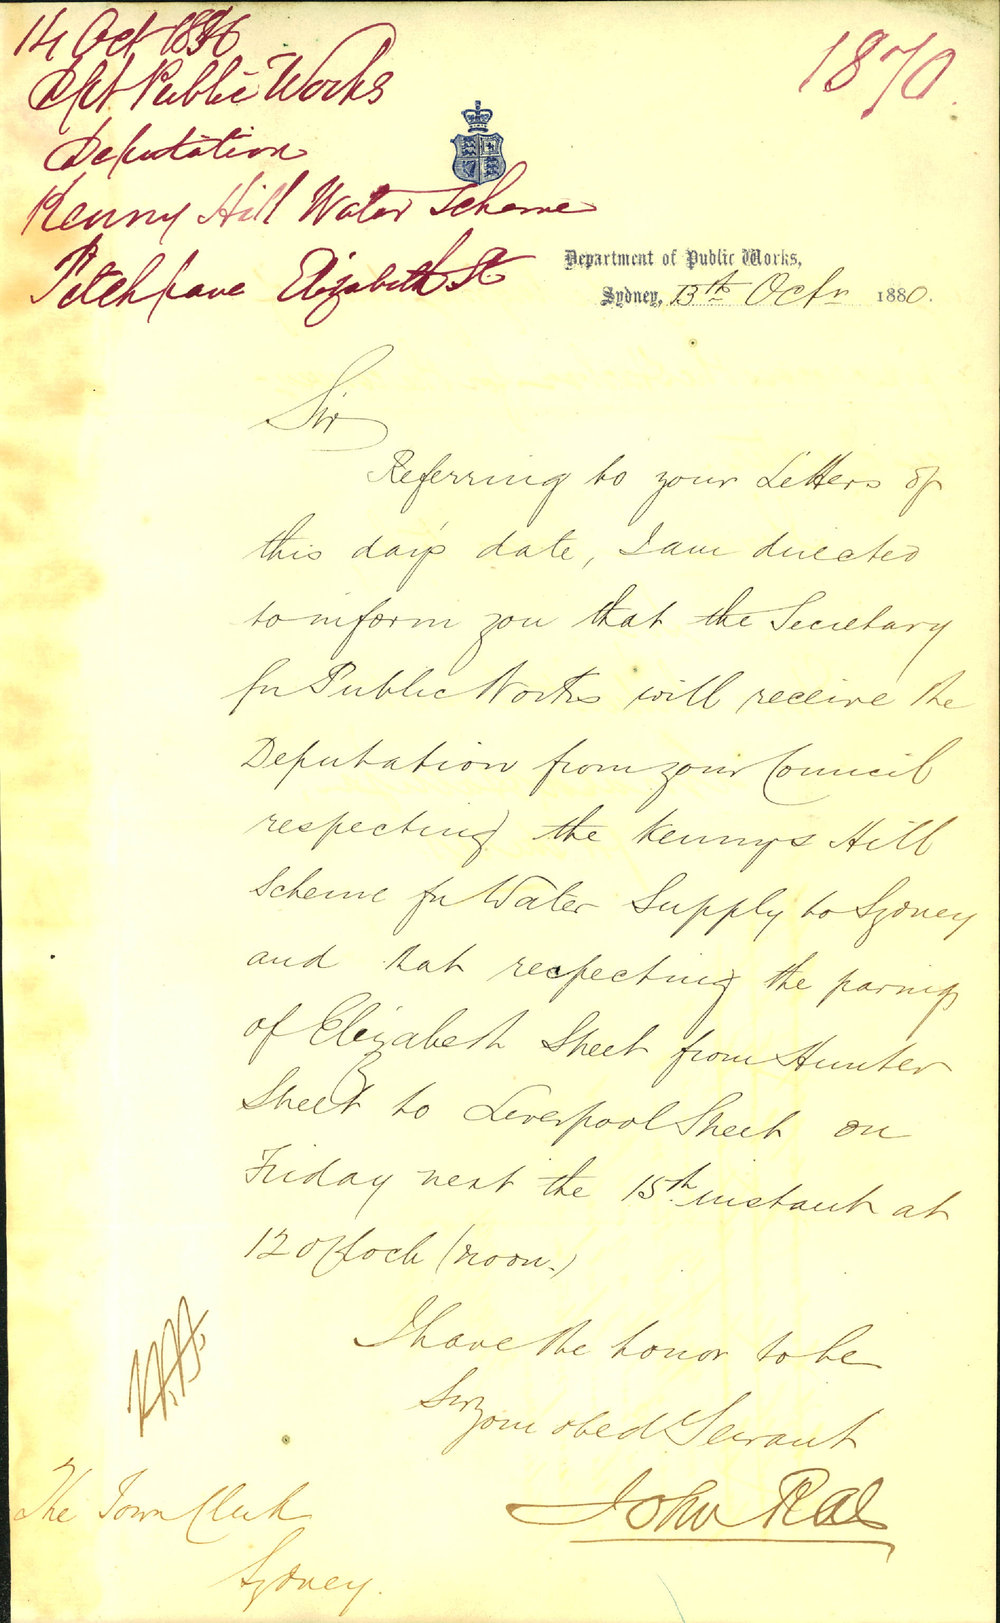 14 Oct 1880
Dept Public Works
Deputation
Kenny Hill Water Scheme
Petch pave Elizabeth St
1870
Department of Public Works,
Sydney, 13th Octr 1880.
Sir
Referring to your Letters of
this day's date, I am directed
to inform you that the Secretary
for Public Works will receive the
Deputation from your Council
respecting the Kennys Hill
Scheme for Water Supply to Sydney
and that respecting the paving
of Elizabeth Street from Hunter
Street to Liverpool Street on
Friday next the 15th instant at
12 o'Clock (noon.)
I have the honor to be
Sir
your obed Servant
John Rae
The Town Clerk
Sydney.